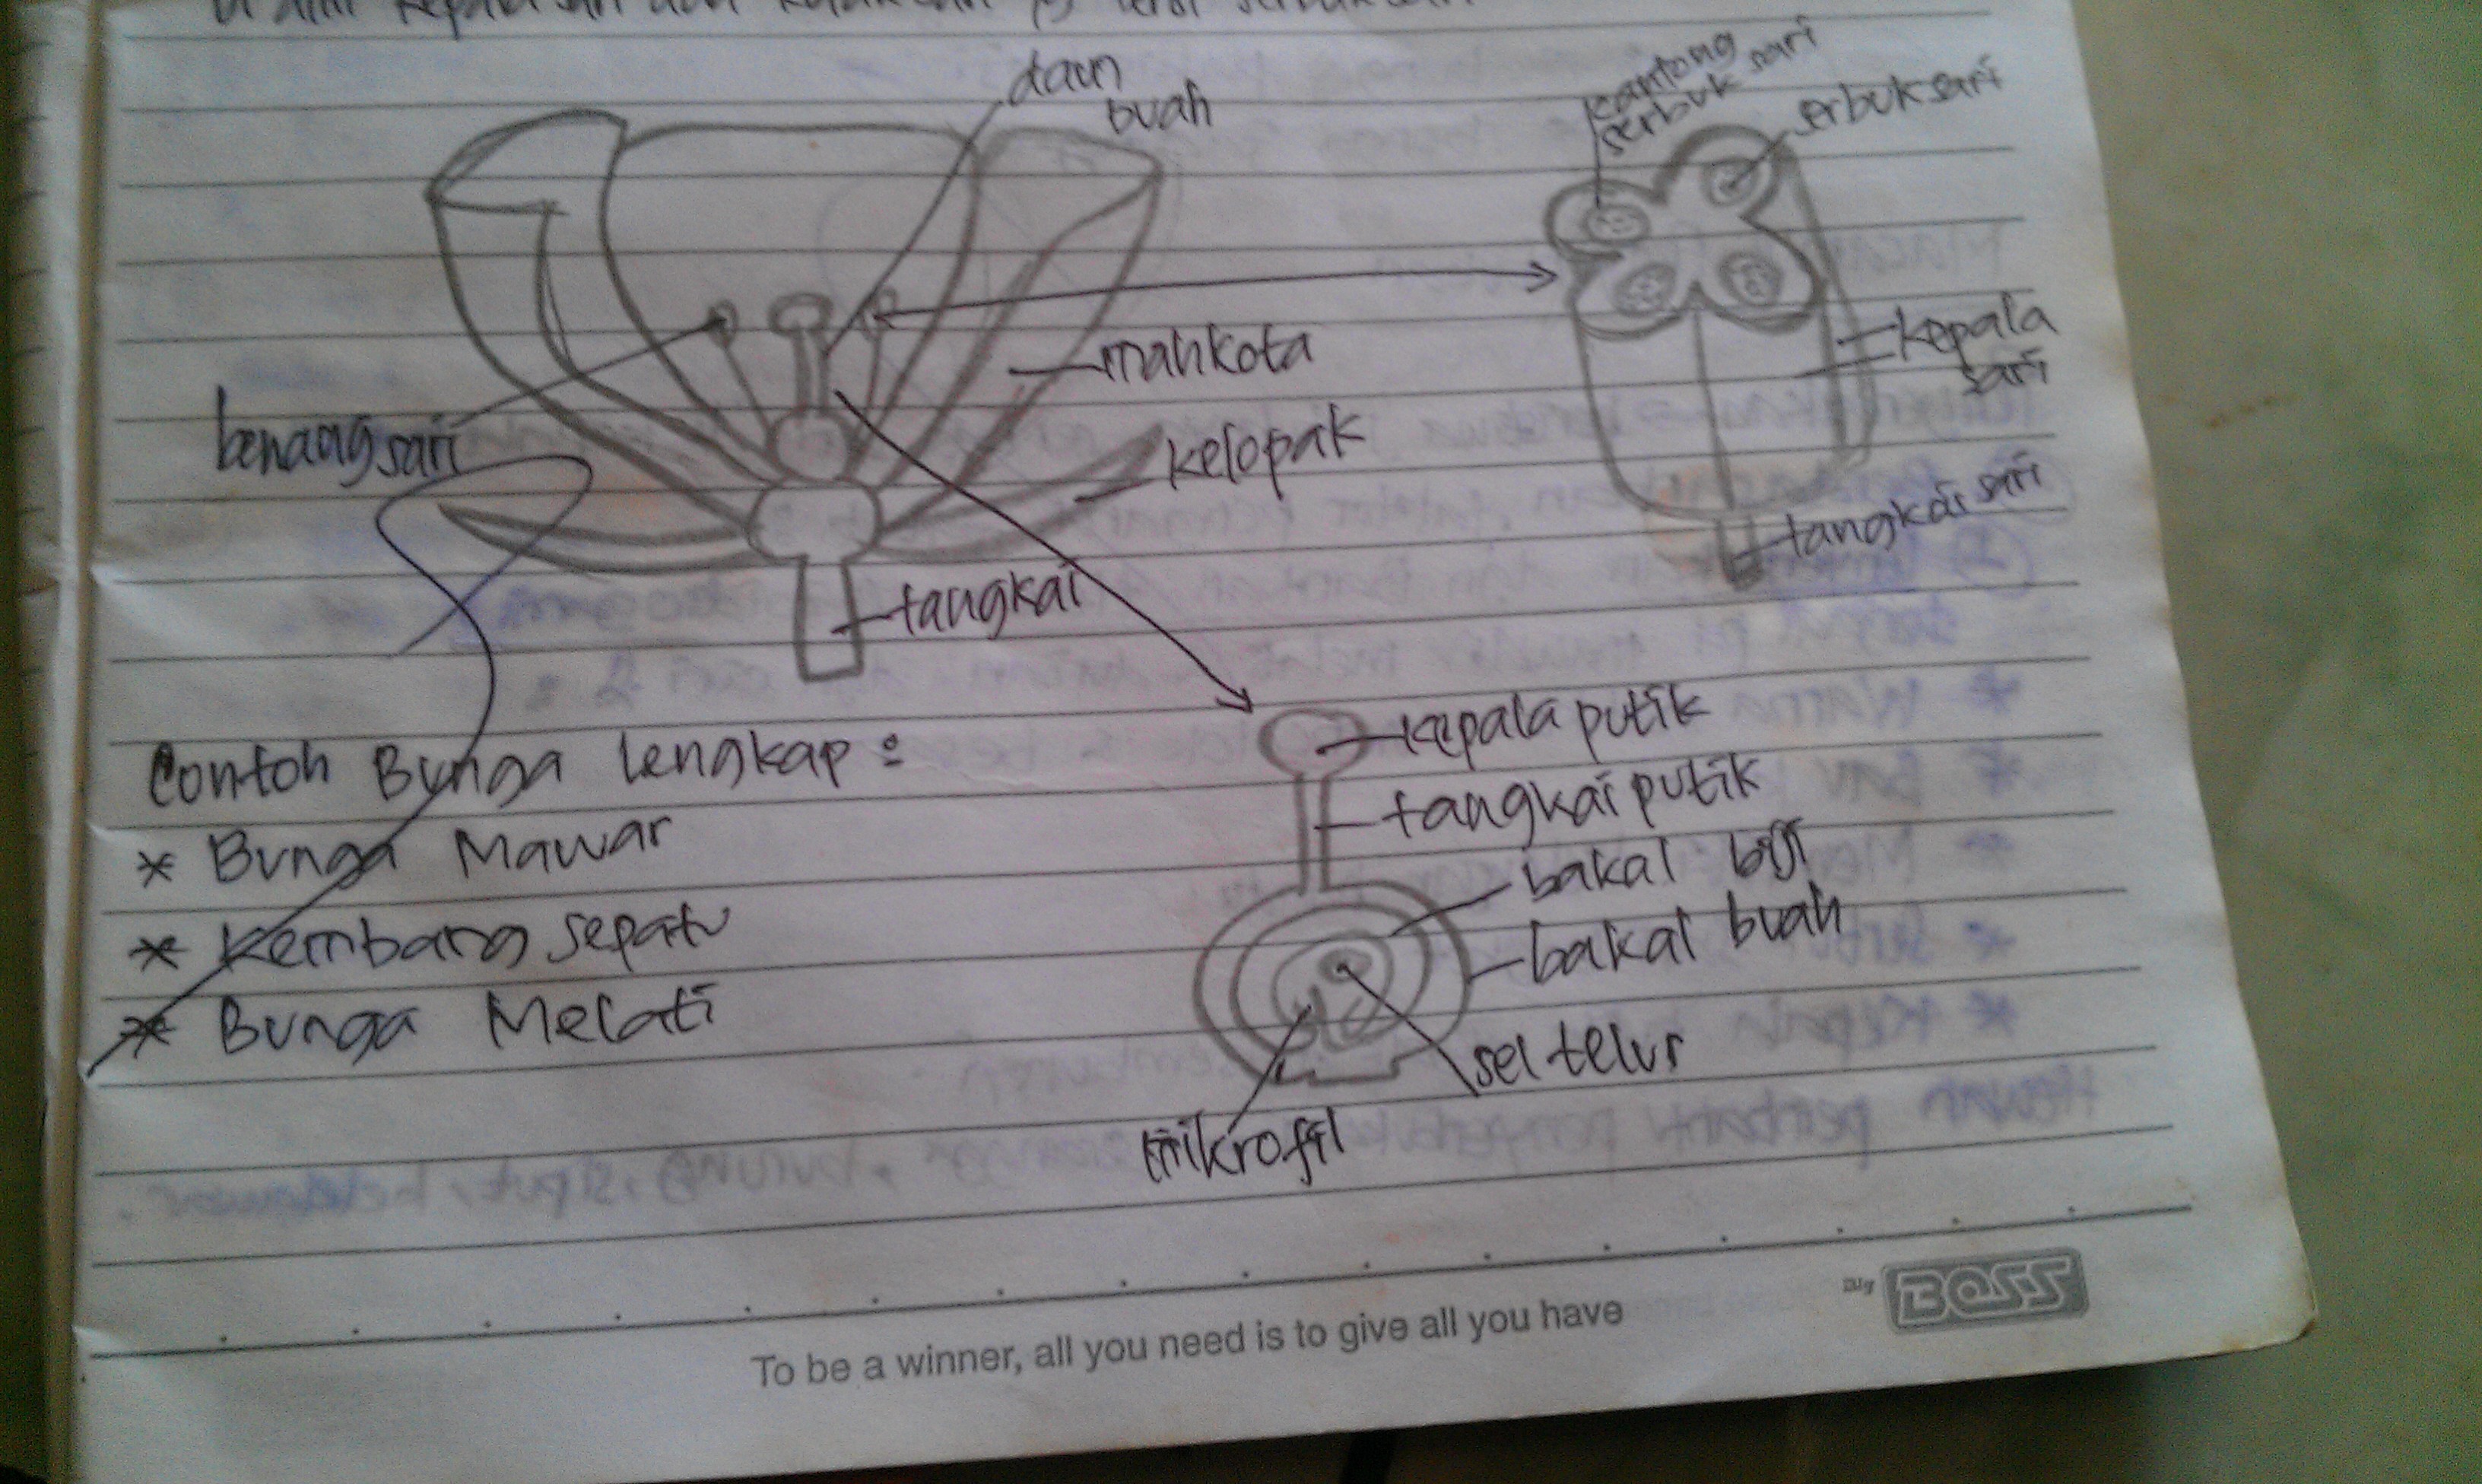 daun
buah
kantong
serbuk sari
serbuk sari
mahkota
kepala
sari
benang sari
kelopak
tangkai sari
tangkai
kepala putik
tangkai putik
bakal biji
bakal buah
sel telur
mikrofil
Contoh Bunga lengkap :
* Bunga Mawar
* Kembang sepatu
* Bunga Melati
To be a winner, all you need is to give all you have
by BOSS